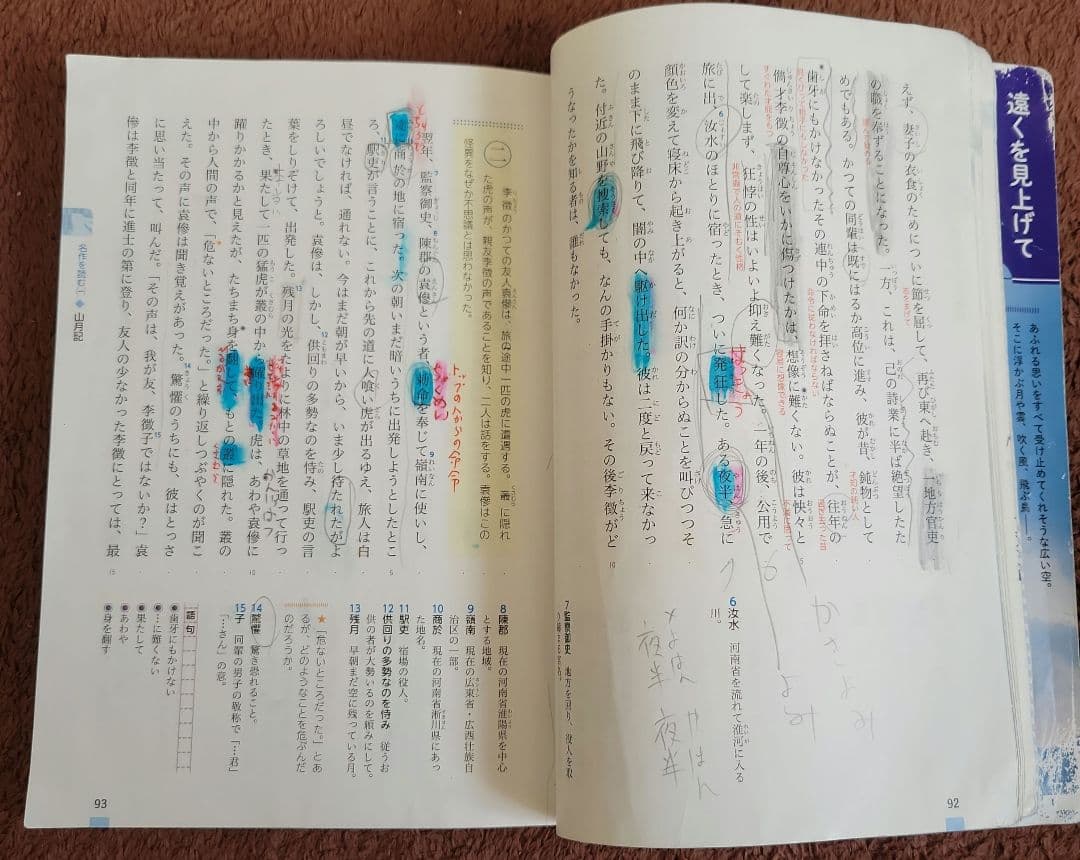 遠くを見上げて
あふれる思いをすべて受け止めてくれそうな広い空。
そこに浮かぶ月や雲、吹く風、飛ぶ鳥――。
えず、妻子の衣食のためについに節を屈して、再び東へ赴き、一地方官吏
の職を奉ずることになった。一方、これは、己の詩業に半ば絶望したた
めでもある。かつての同輩は既にはるか高位に進み、彼が昔、鈍物として
歯牙にもかけなかったその連中の下命を拝さねばならぬことが、往年の
儁才李徴の自尊心をいかに傷つけたかは、想像に難くない。彼は怏々と
して楽しまず、狂悖の性はいよいよ抑え難くなった。一年の後、公用で
旅に出、汝水のほとりに宿ったとき、ついに発狂した。ある夜半、急に
顔色を変えて寝床から起き上がると、何か訳の分からぬことを叫びつつそ
のまま下に飛び降りて、闇の中へ駆け出した。彼は二度と戻って来なかっ
た。付近の山野を捜索しても、なんの手掛かりもない。その後李徴がど
うなったかを知る者は、誰もなかった。
志をまげて
才知の鈍い人
過ぎ去った日
容易に想像できる
はっきょう
やはん
かさよみ
よみ
よなか
夜半
やはん
夜半
6 汝水 河南省を流れて淮河に入る
川。
7 監察御史 地方を回り、役人を取
92
二
李徴のかつての友人袁傪は、旅の途中一匹の虎に遭遇する。叢に隠れ
た虎の声が、親友李徴の声であることを知り、二人は話をする。袁傪はこの
怪異をなぜか不思議とは思わなかった。
翌年、監察御史、陳郡の袁傪という者、勅命を奉じて嶺南に使いし、
途に商於の地に宿った。次の朝いまだ暗いうちに出発しようとしたとこ
ろ、駅吏が言うことに、これから先の道に人喰い虎が出るゆえ、旅人は白
昼でなければ、通れない。今はまだ朝が早いから、いま少し待たれたがよ
ろしいでしょうと。袁傪は、しかし、供回りの多勢なのを恃み、駅吏の言
葉をしりぞけて、出発した。残月の光をたよりに林中の草地を通って行っ
たとき、果たして一匹の猛虎が叢の中から躍り出た。虎は、あわや袁傪に
躍りかかるかと見えたが、たちまち身を翻して、もとの叢に隠れた。叢の
中から人間の声で、「危ないところだった。」と繰り返しつぶやくのが聞こ
えた。その声に袁傪は聞き覚えがあった。驚懼のうちにも、彼はとっさ
に思い当たって、叫んだ。「その声は、我が友、李徴子ではないか?」袁
傪は李徴と同年に進士の第に登り、友人の少なかった李徴にとっては、最
ちょくめい
トップの人からの命令
8 陳郡 現在の河南省淮陽県を中心
とする地域。
9 嶺南 現在の広東省・広西壮族自
治区の一部。
10 商於 現在の河南省淅川県にあっ
た地名。
11 駅吏 宿場の役人。
12 供回りの多勢なのを恃み 従うお
供の者が大勢いるのを頼みにして。
13 残月 早朝まだ空に残っている月。
★「危ないところだった。」とあ
るが、どのようなことを危ぶんだ
のだろうか。
14 驚懼 驚き恐れること。
15 子 同輩の男子の敬称で「…君」
「…さん」の意。
語句
●歯牙にもかけない
●…に難くない
●果たして
●あわや
●身を翻す
名作を読む一 ◆ 山月記
93